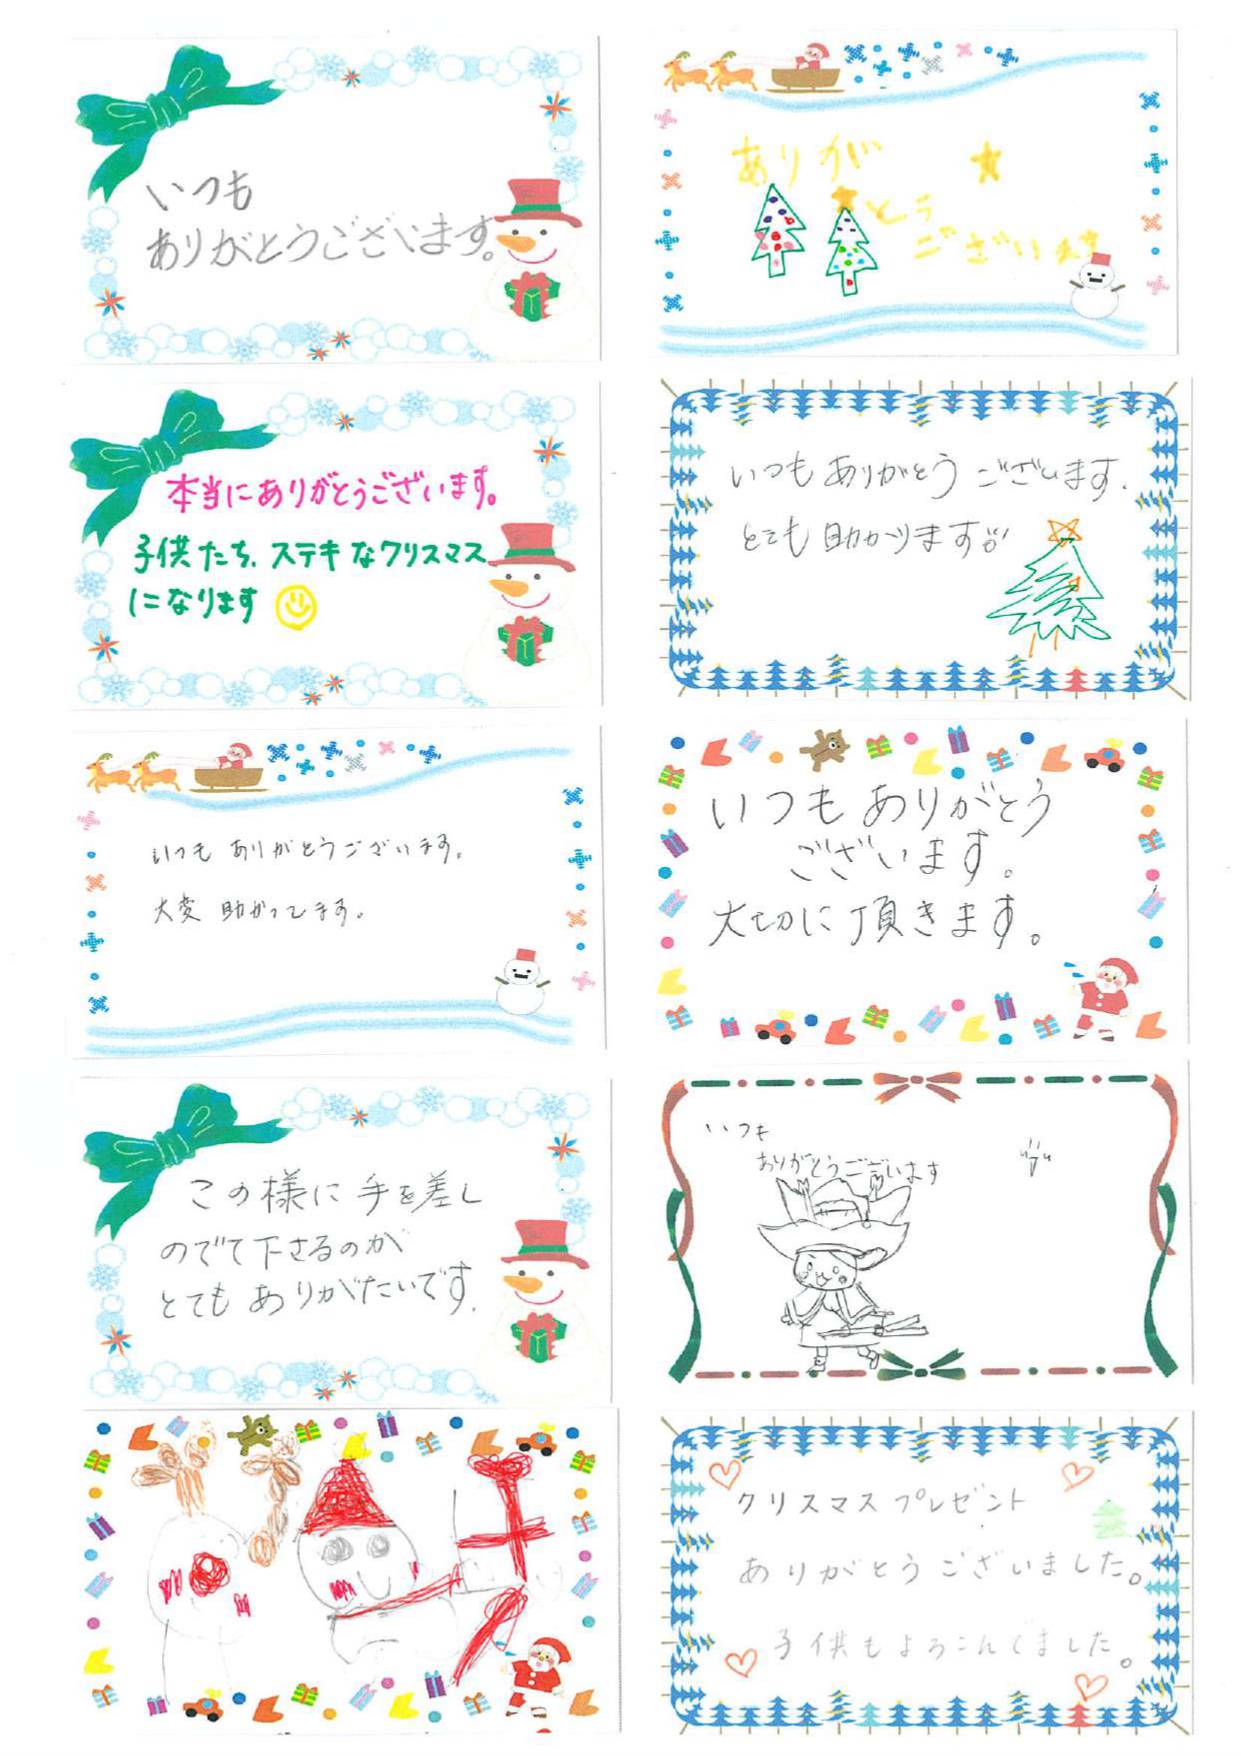 いつも
ありがとうございます。
ありが
とう
ございます
本当にありがとうございます。
子供たち、ステキなクリスマス
になります
いつもありがとうございます.
とても助かります
いつもありがとうございます。
大変助かってます。
いつもありがとう
ございます。
大切に頂きます。
この様に手を差し
のでて下さるのが
とてもありがたいです.
いつも
ありがとうございます
クリスマスプレゼント
ありがとうございました。
子供もよろこんでました。